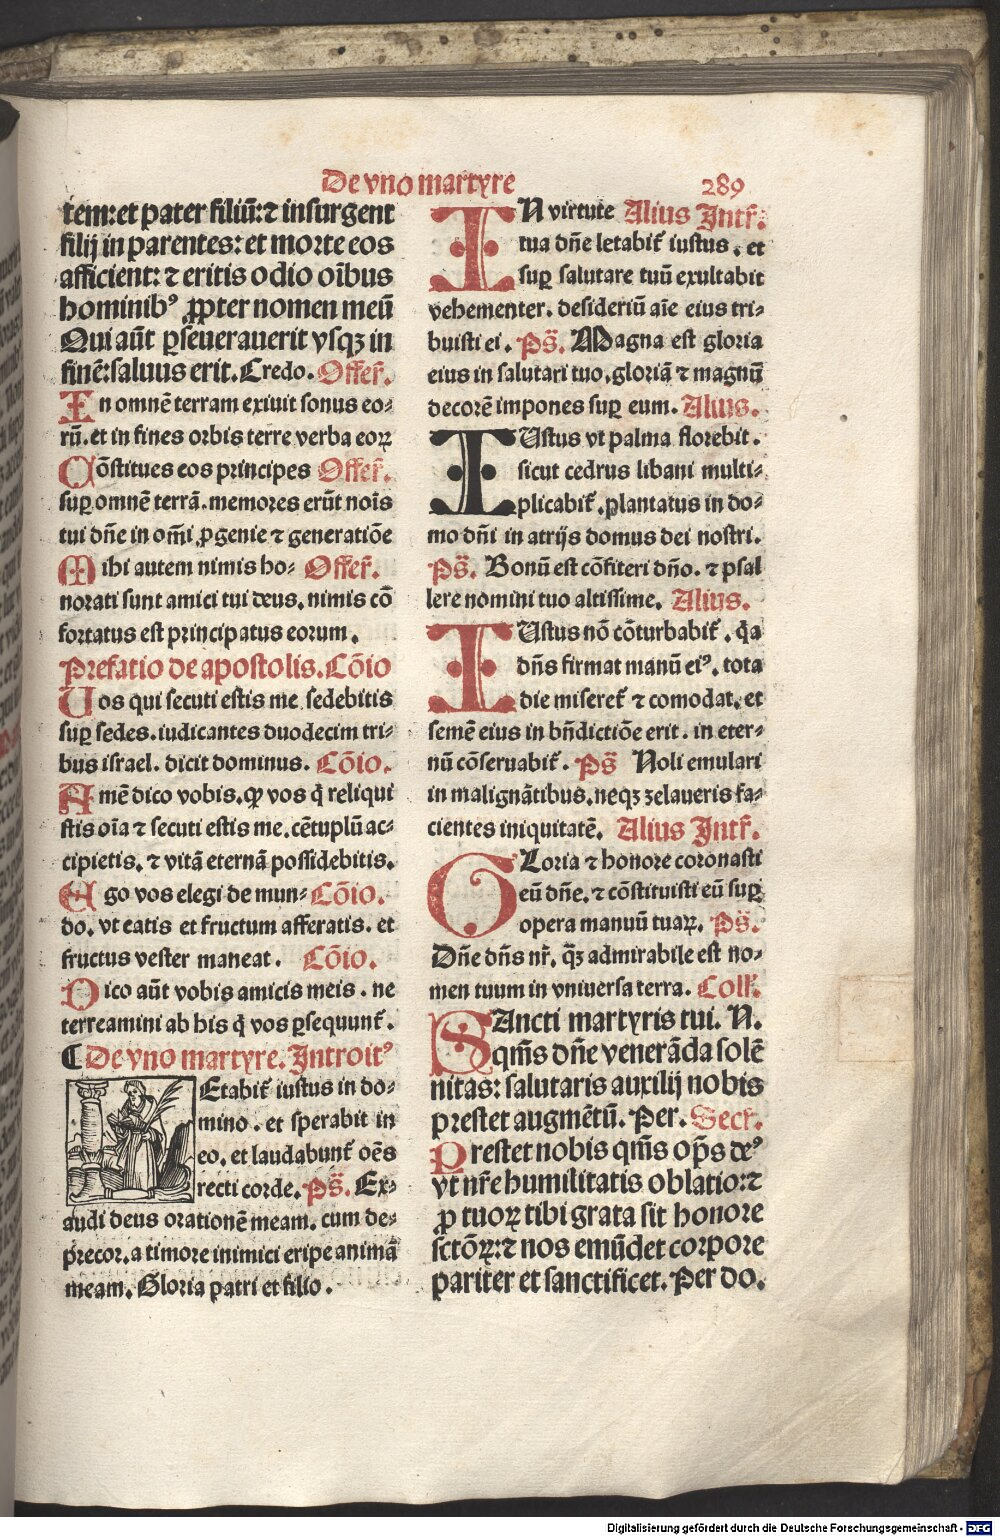 De vno martyre
289
tem: et pater filiū: ⁊ insurgent
filij in parentes: et morte eos
afficient: ⁊ eritis odio oībus
hominibꝰ ꝓpter nomen meū
Qui aūt ꝑseuerauerit vsqꝫ in
finē: saluus erit. Credo. Offer̄.
In omnē terram exiuit sonus eo⸗
rū. et in fines orbis terre verba eoꝝ
Cōstitues eos principes Offer̄.
suꝑ omnē terrā. memores erūt nois
tui dn̄e in om̄i ꝓgenie ⁊ generatiōe
Mihi autem nimis ho⸗ Offer̄.
norati sunt amici tui deus. nimis cō
fortatus est principatus eorum.
Prefatio de apostolis. Cōio
Uos qui secuti estis me sedebitis
suꝑ sedes. iudicantes duodecim tri⸗
bus israel. dicit dominus. Cōio.
Amē dico vobis. ꝙ vos q̄ reliqui
stis oīa ⁊ secuti estis me. cētuplū ac⸗
cipietis. ⁊ vitā eternā possidebitis.
Ego vos elegi de mun⸗ Cōio.
do. vt eatis et fructum afferatis. et
fructus vester maneat. Cōio.
Dico aūt vobis amicis meis. ne
terreamini ab his q̄ vos ꝑsequunt̄.
¶ De vno martyre. Introitꝰ
Letabit̄ iustus in do⸗
mino. et sperabit in
eo. et laudabunt̄ oēs
recti corde. Ps̄. Ex⸗
audi deus orationē meam. cum de⸗
precor. a timore inimici eripe animā
meam. Gloria patri et filio.
IN virtute Alius Intr̄.
tua dn̄e letabit̄ iustus. et
suꝑ salutare tuū exultabit
vehementer. desideriū aīe eius tri⸗
buisti ei. Ps̄. Magna est gloria
eius in salutari tuo. gloriā ⁊ magnū
decorē impones suꝑ eum. Alius.
IUstus vt palma florebit.
sicut cedrus libani multi⸗
plicabit̄. plantatus in do⸗
mo dn̄i in atrijs domus dei nostri.
Ps̄. Bonū est cōfiteri dn̄o. ⁊ psal
lere nomini tuo altissime. Alius.
IUstus nō cōturbabit̄. q̄a
dn̄s firmat manū eiꝰ. tota
die miseret̄ ⁊ comodat. et
semē eius in bn̄dictiōe erit. in eter⸗
nū cōseruabit̄. Ps̄ Noli emulari
in malignātibus. neqꝫ zelaueris fa⸗
cientes iniquitatē. Alius Intr̄.
GLoria ⁊ honore coronasti
eū dn̄e. ⁊ cōstituisti eū suꝑ
opera manuū tuaꝝ. Ps̄.
Dn̄e dn̄s nr̄. q̄ꝫ admirabile est no⸗
men tuum in vniuersa terra. Coll̄.
SAncti martyris tui. N.
qm̄s dn̄e venerāda solē
nitas: salutaris auxilij nobis
prestet augmētū. Per. Secr̄.
Prestet nobis qm̄s op̄s deꝰ
vt nr̄e humilitatis oblatio: ⁊
ꝓ tuoꝝ tibi grata sit honore
sctōꝝ: ⁊ nos emūdet corpore
pariter et sanctificet. Per do.
Digitalisierung gefördert durch die Deutsche Forschungsgemeinschaft - DFG